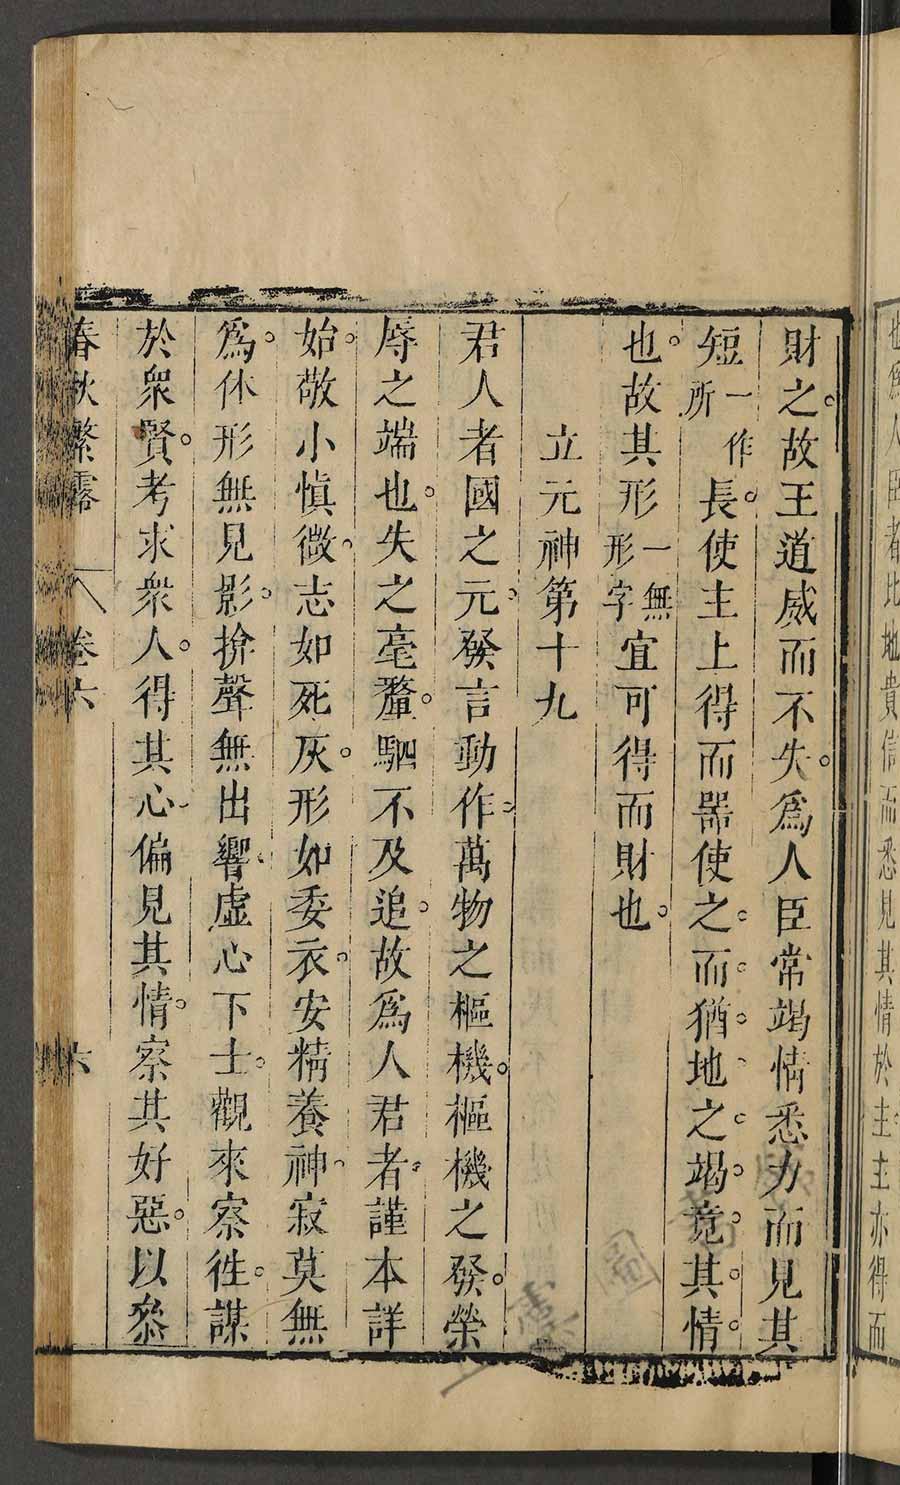 也爲人臣者比地貴信而悉見其情於主主亦得而
財之。故王道威而不失。爲人臣常竭情悉力而見其
短一作所長。使主上得而器使之。而。猶。地。之。竭。竟。其。情。
也。故其形一無形字宜可得而財也。
立元神第十九
君人者國之元。發言動作。萬物之樞機。樞機之發。榮
辱之端也。失之毫釐。駟不及追。故爲人君者。謹本詳
始。敬小慎微。志如死灰。形如委衣。安精養神。寂莫無
爲。休形無見影。揜聲無出響。虛心下士。觀來察徃。謀
於衆賢。考求衆人。得其心。偏見其情。察其好惡。以叅
春秋繁露 卷六 六